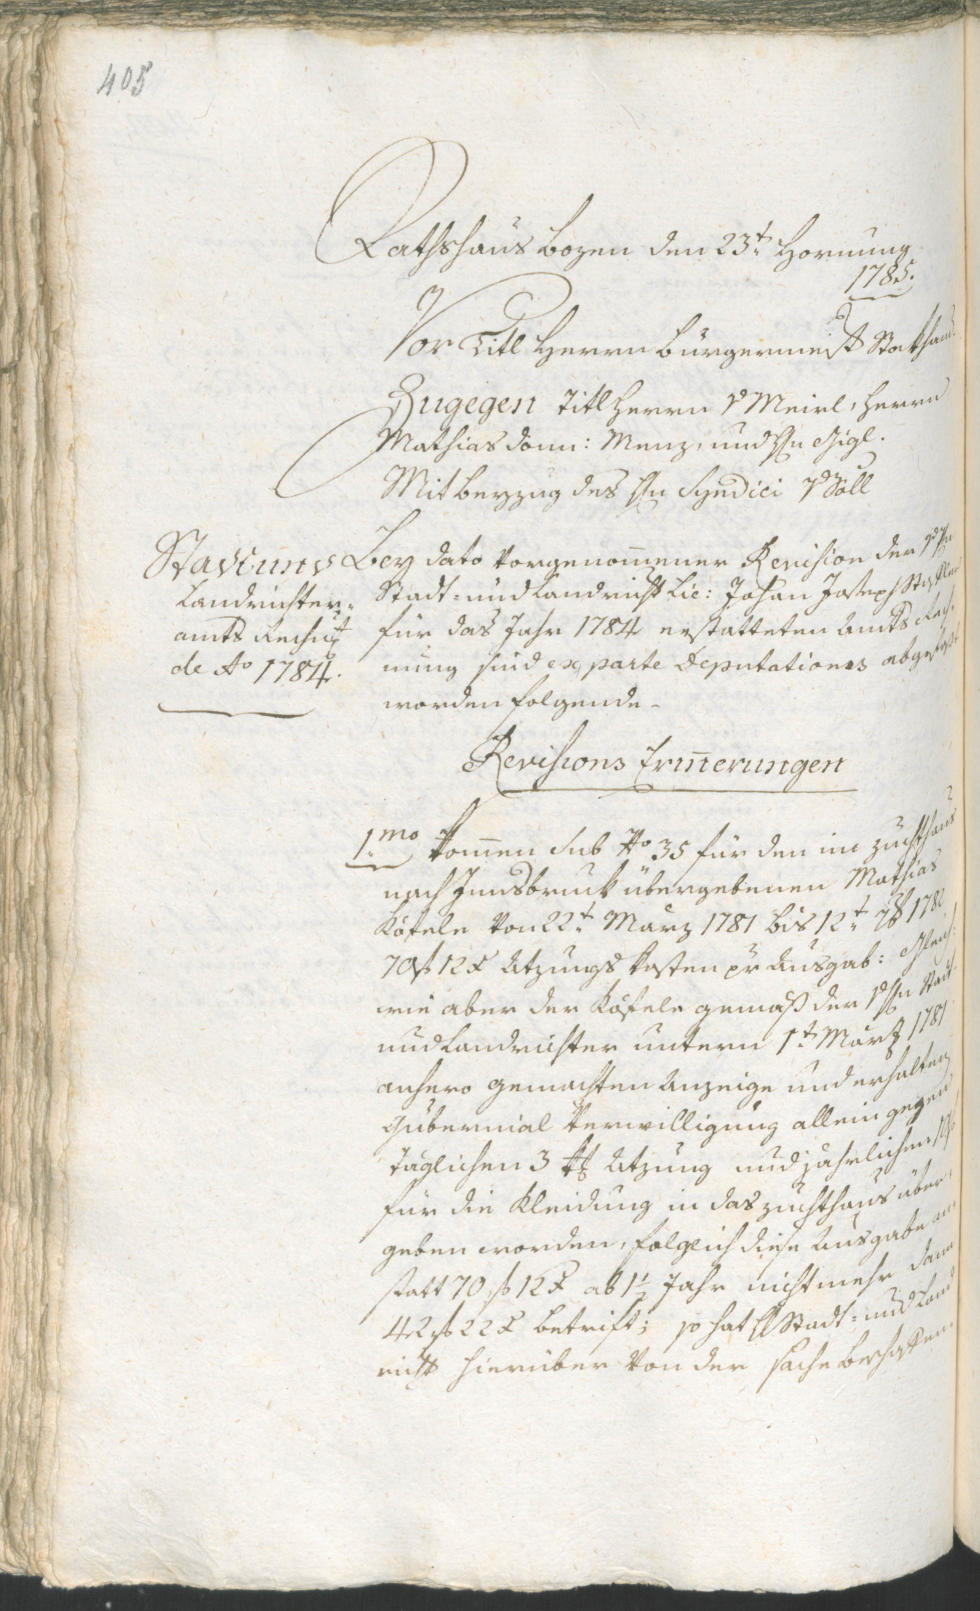 405
Rathshaus Bozen den 23t Hornung
1785.
Vor Titl Herrn Bürgermeist
Zugegen Titl Herrn v Meirl, Herrn
Mathias Domi: Menz, und Hn Gigl.
Mit Beyzug des Hn Syndici v Söll
Stadt und
Landrichter-
amts Rechng
de Ao 1784.
Bey dato vorgenomener Revision der
Stadt- und Landricht Lic: Johan Joseph
für das Jahr 1784 erstatteten Amts Rech-
nung sind ex parte Deputationis
worden folgende -
Revisions Erinerungen
1mo Komen sub No 35 für den im Zuchthaus
nach Innsbruck übergebenen Mathias
Köfele von 22t März 1781 bis 12t 1782
70 f 12 x Atzungs Kosten pr Ausgab:
wie aber der Köfele gemäß der Hn Stadt
und Landrichter untern 1t März 1781
anhero gemachten Anzeige und erhalten
Gubernial Verwilligung allein gegen
täglichen 3 x Atzung und jährlichen
für die Kleidung in das Zuchthaus über-
geben worden, folglich diese Ausgabe an-
statt 70 f 12 x ab 1 1/2 Jahr nicht mehr dann
42 f 22 x betrift; so hat H Stadt- und Land
richt hierüber von der Sache Beschaffen-